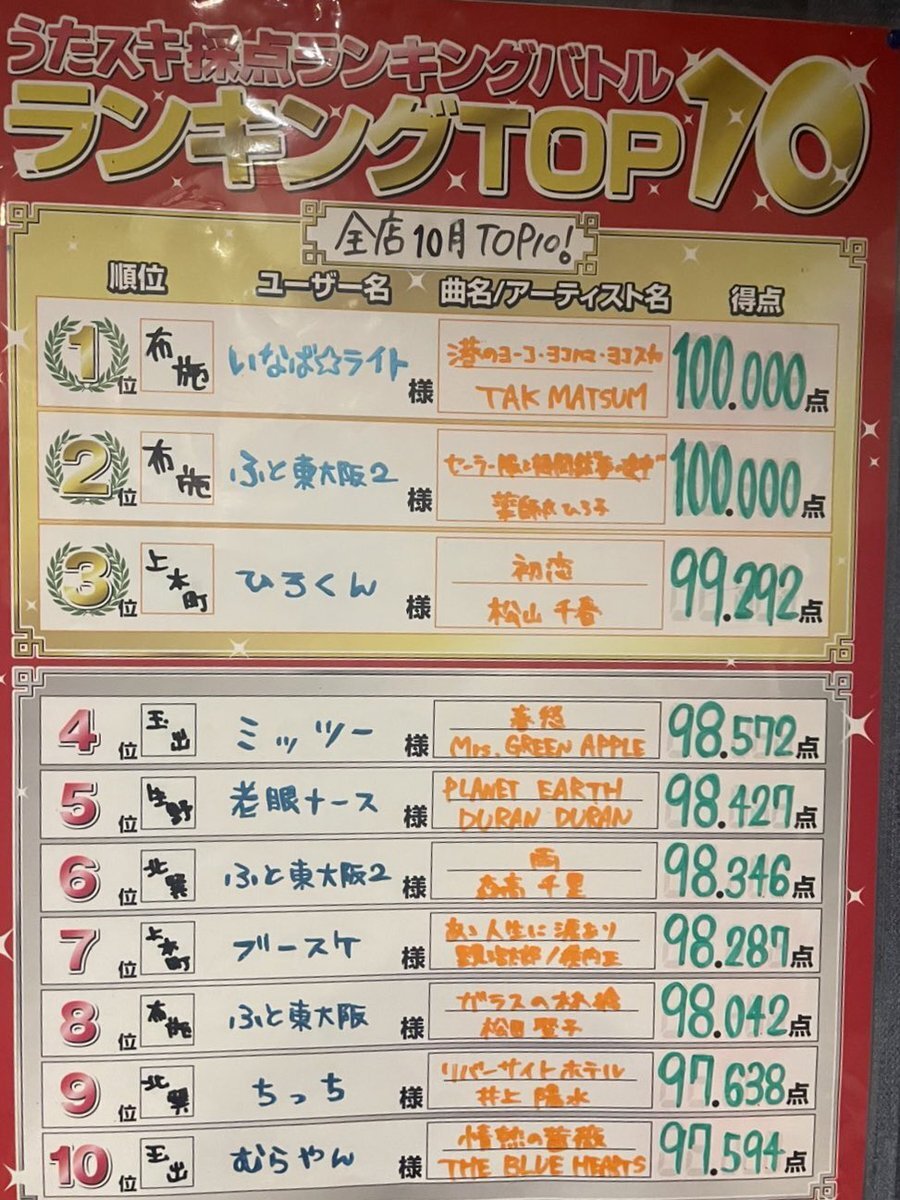 うたスキ採点ランキングバトル
ランキングTOP10
全店10月TOP10!
順位 ユーザー名 曲名/アーティスト名 得点
1位 布施 いなば☆ライト様 港のヨーコ・ヨコハマ・ヨコスカ 100.000点
TAK MATSUM
2位 布施 ふと東大阪2様 セーラー服と機関銃 100.000点
薬師丸ひろ子
3位 上本町 ひろくん様 初恋 99.292点
松山千春
4位 玉出 ミッツー様 春愁 98.572点
Mrs. GREEN APPLE
5位 生野 老眼ナース様 PLANET EARTH 98.427点
DURAN DURAN
6位 北巽 ふと東大阪2様 雨 98.346点
森高千里
7位 上本町 ブースケ様 あゝ人生に涙あり 98.287点
8位 布施 ふと東大阪様 ガラスの林檎 98.042点
松田聖子
9位 北巽 ちっち様 リバーサイトホテル 97.638点
井上陽水
10位 玉出 むらやん様 情熱の薔薇 97.594点
THE BLUE HEARTS